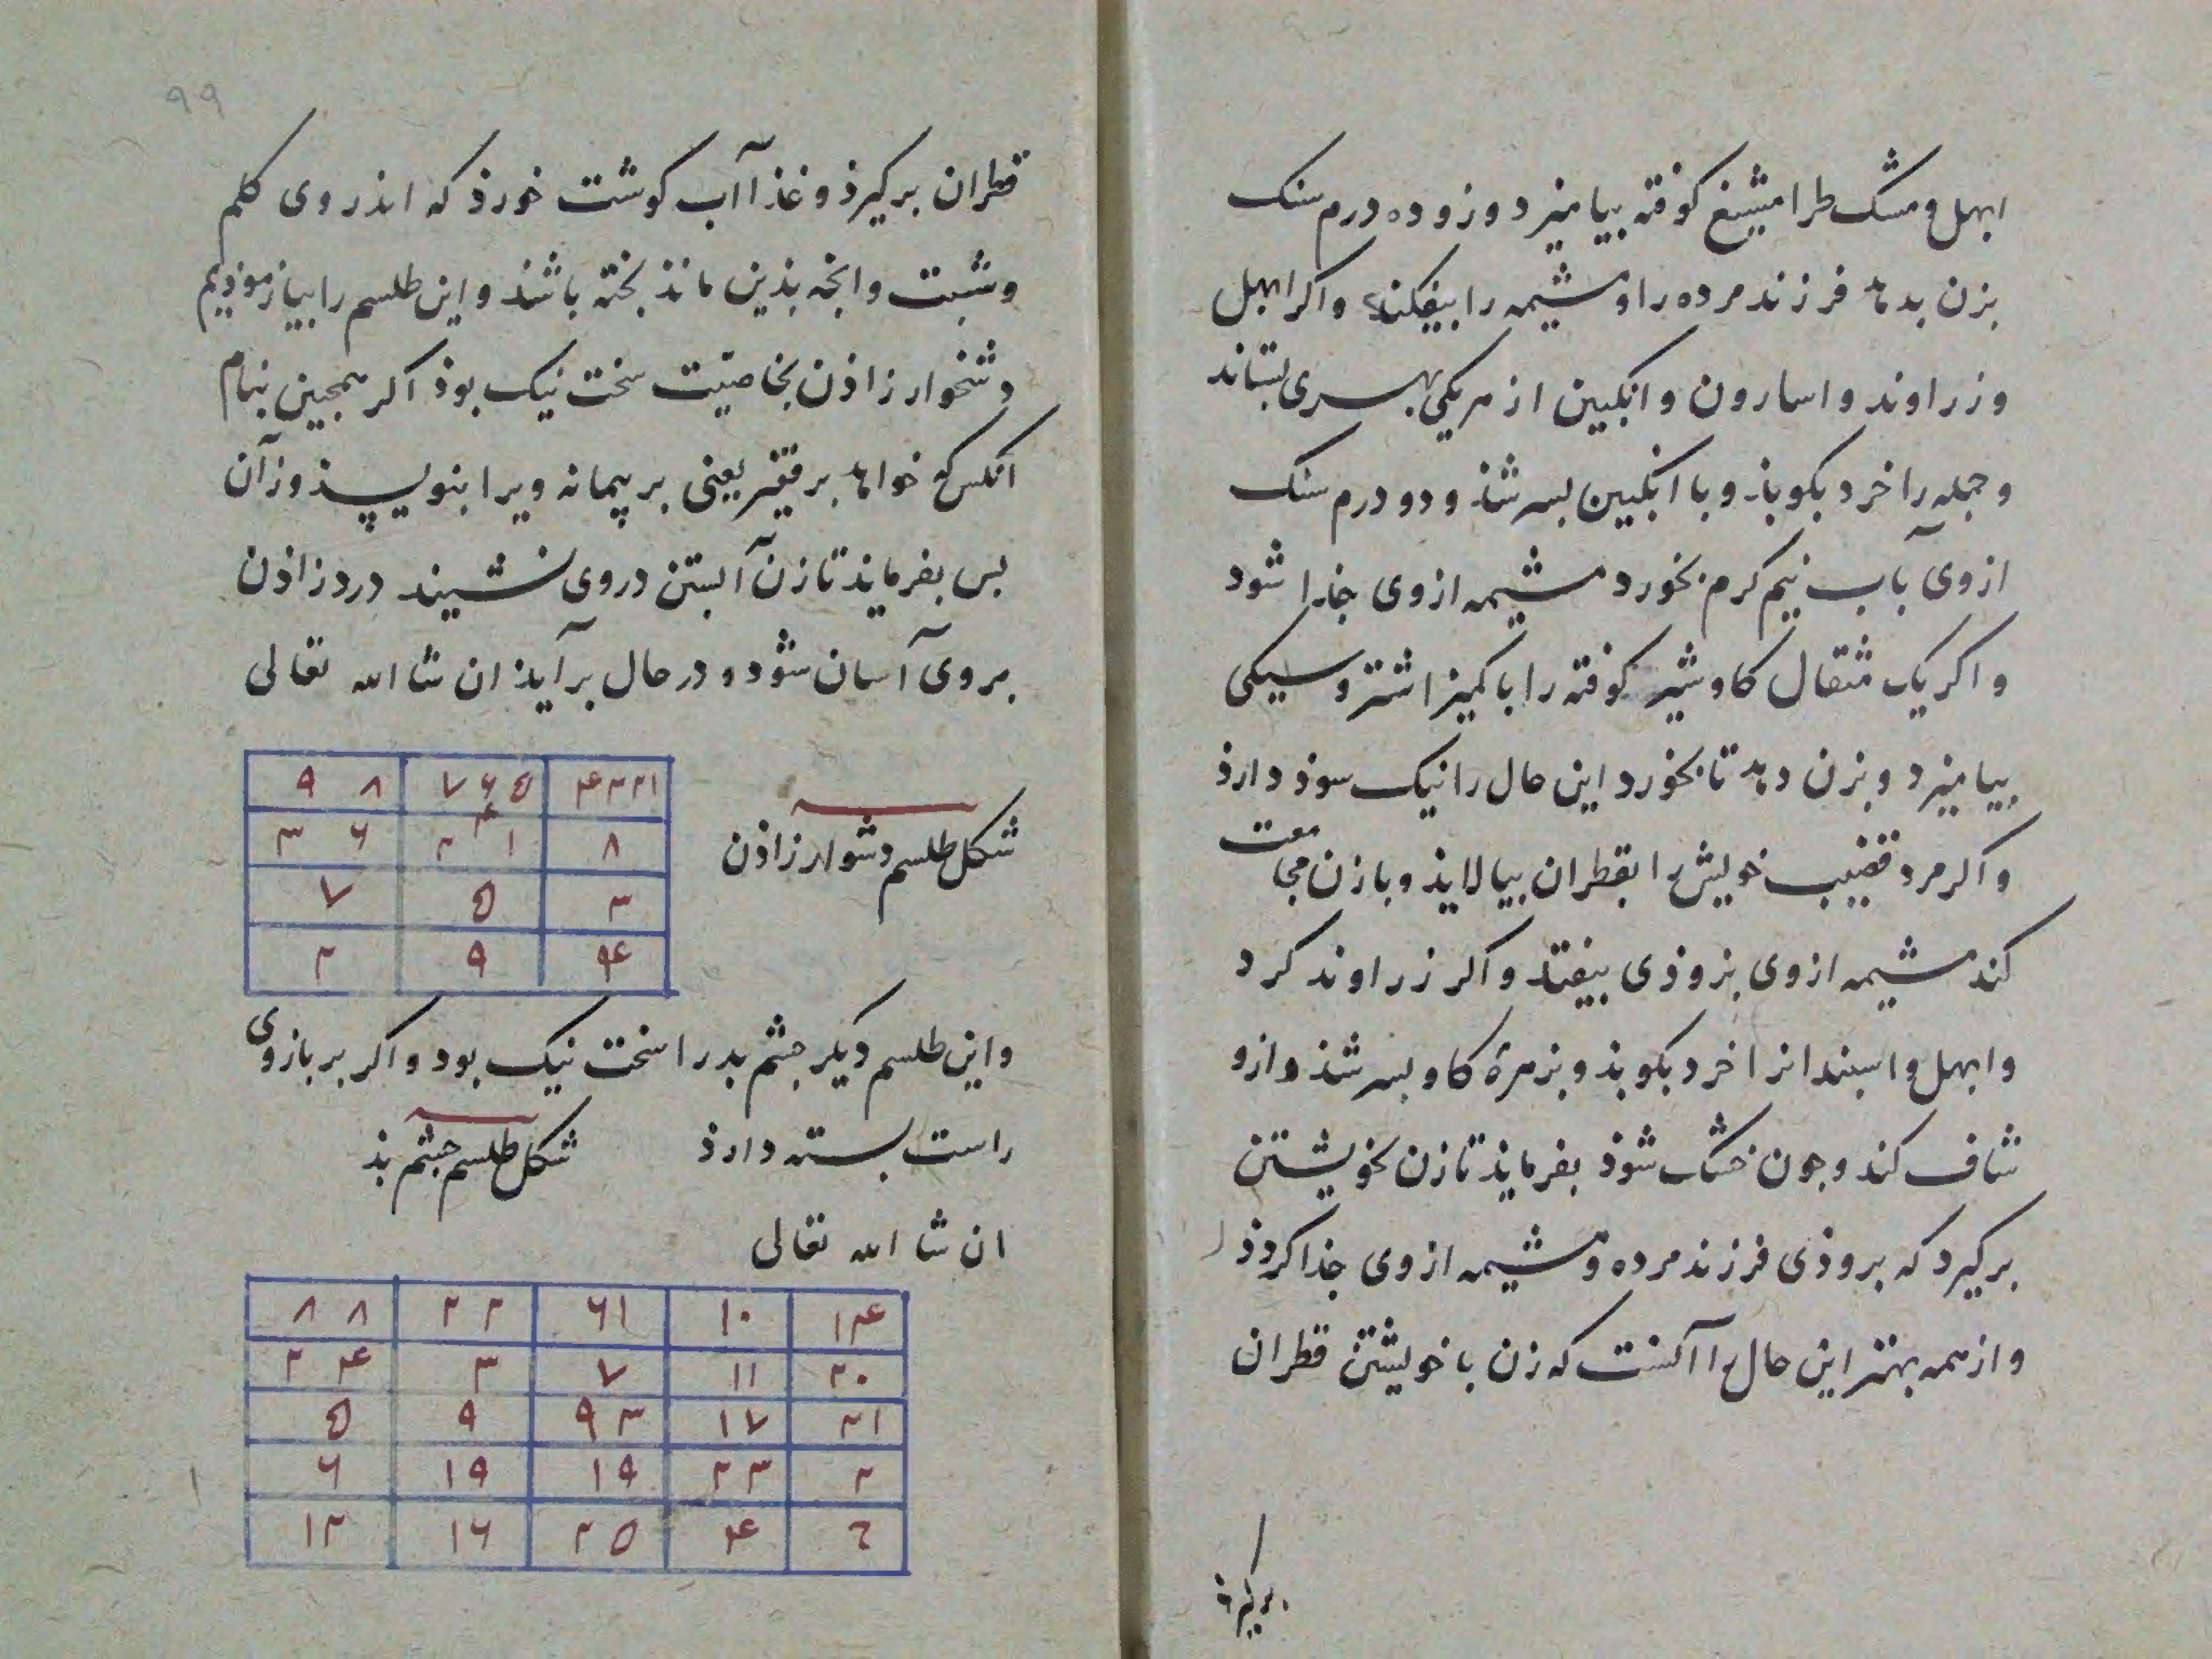 ابهل و مشک طرامشیغ کوفته بیامیزد وزو ده درم سنک
بزن بدهد فرزند مرده را و مشیمه را بیفکند و اکر ابهل
و زراوند و اسارون و انکبین از هریکی بهسری بستاند
و جمله را خرد بکوبذ و با انکبین بسرشذ و دو درم سنک
از وی بآب نیم کرم بخورد مشیمه از وی جذا شود
و اکر یک مثقال کاوشیر کوفته را با کمیز اشتر و سیکی
بیامیزد و بزن دهد تا بخورد این حال را نیک سوذ دارذ
و اکر مرد قضیب خویش را بقطران بیالایذ و با زن مجامعت
کند مشیمه از وی بزوذی بیفتد و اکر زراوند کرد
و ابهل و اسبندانرا خرد بکوبذ و بزهرهٔ کاو بسرشذ و ازو
شاف کند و جون خشک شوذ بفرمایذ تا زن بخویشتن
برکیرد که بزوذی فرزند مرده و مشیمه از وی جذا کردذ
و از همه بهتر این حال را آنست که زن با خویشتن قطران
برکیرذ
۹۹
قطران برکیرذ و غذا آب کوشت خورذ که اندر وی کلم
و شبت و انجه بذین مانذ بخته باشذ و این طلسم را بیازموذیم
دشخوار زاذن بخاصیت سخت نیک بوذ اکر همجنین بنام
انکس که خواهد بر قفیز یعنی بر پیمانه ویرا بنویسذ وزآن
بس بفرمایذ تا زن آبستن در وی نشیند درد زاذن
بروی آسان شود و در حال برآیذ ان شا الله تعالی
شکل طلسم دشوار زاذن
۴۳۲۱ ۷۶۵ ۹ ۸
۸ ۲ ۴ ۱ ۳ ۶
۳ ۵ ۷
۴ ۹ ۲
و این طلسم دیکر جشم بد را سخت نیک بود و اکر بر بازوی
راست بسته دارذ شکل طلسم جشم بذ
ان شا الله تعالی
۱۴ ۱۰ ۶۱ ۲۲ ۸۸
۲۰ ۱۱ ۷ ۳ ۲۴
۲۱ ۱۷ ۹۳ ۹ ۵
۲ ۲۳ ۱۹ ۱۹ ۶
۴ ۲۵ ۱۶ ۱۲